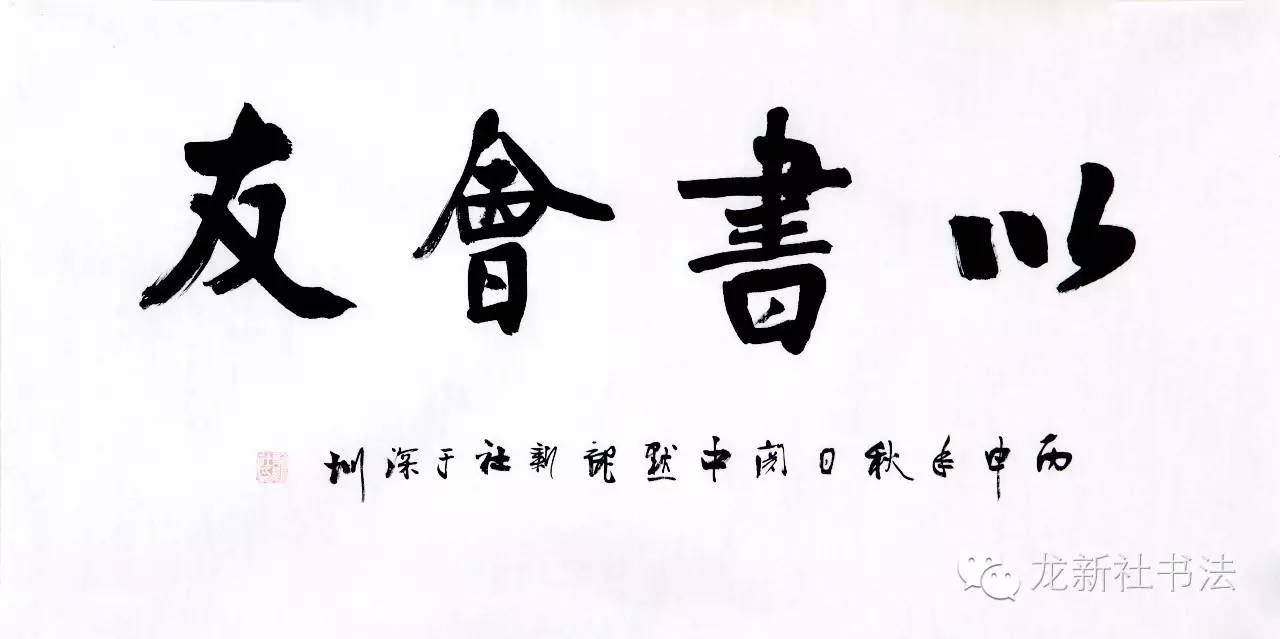 以書會友
丙申年秋日中默龍新社于深圳
龙新社书法